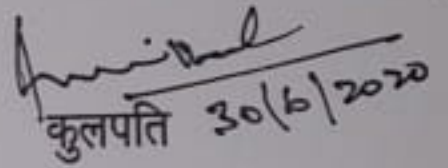 कुलपति 30/6/2020